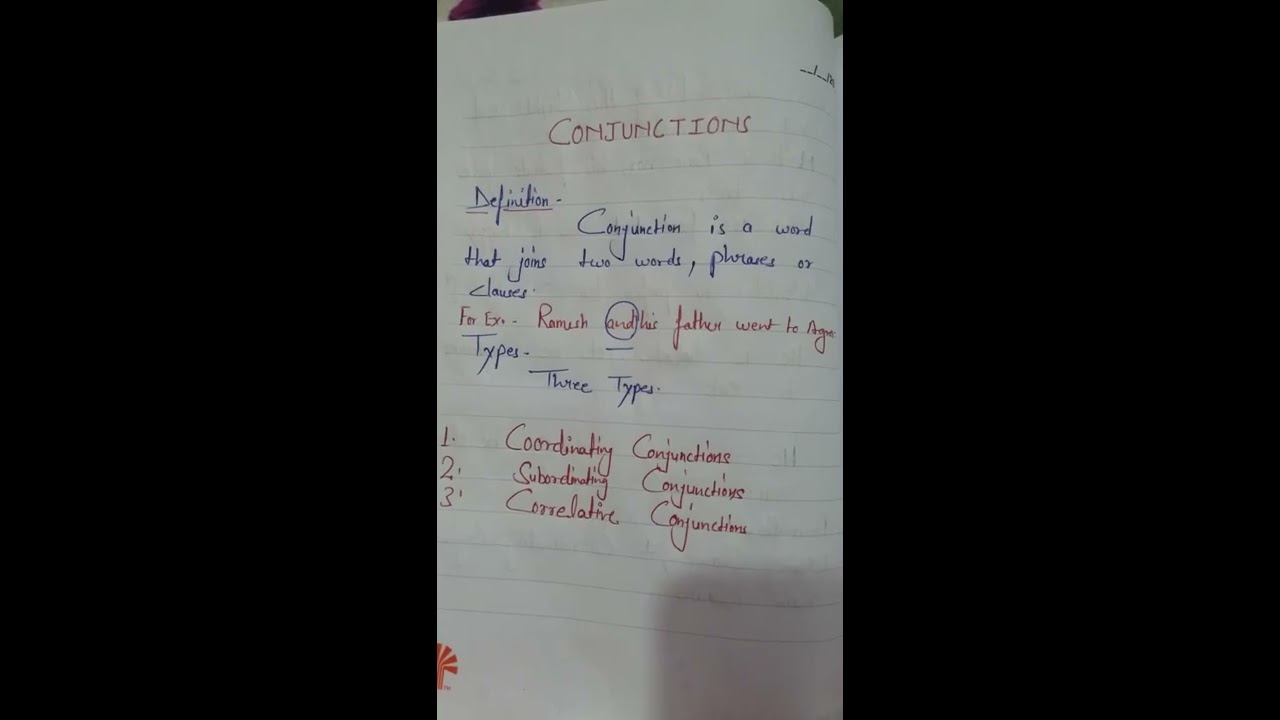 CONJUNCTIONS
Definition -
Conjunction is a word
that joins two words, phrases or
clauses.
For Ex. - Ramesh and his father went to Agra
Types -
Three Types.
1. Coordinating Conjunctions
2. Subordinating Conjunctions
3. Correlative Conjunctions